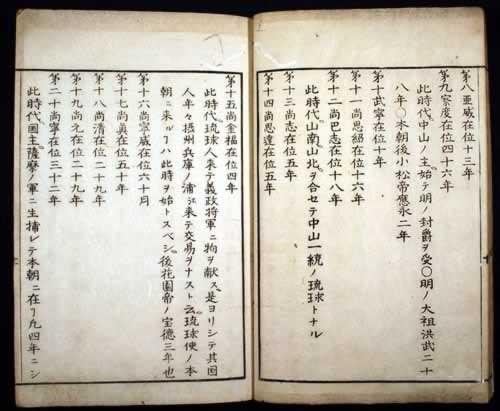 第八亜威在位十三年
第九察度在位四十六年
此時代中山ノ主始テ明ノ封爵ヲ受〇明ノ大祖洪武二十
八年〇本朝後小松帝應永二年
第十武寧在位十年
第十一尚思紹在位十六年
第十二尚巴志在位十八年
此時代山南山北ヲ合セテ中山一統ノ琉球トナル
第十三尚志在位五年
第十四尚思達在位五年
第十五尚金福在位四年
此時代琉球人来テ義政将軍ニ物ヲ献ス是ヨリシテ其国
人年々摂州兵庫ノ浦ニ来テ交易ヲナスト云琉球使ノ本
朝ニ来ルヿハ此時ヲ始トスベシ後花園帝ノ宝徳三年也
第十六尚寧威在位六十月
第十七尚真在位五十年
第十八尚清在位二十九年
第十九尚元在位二十九年
第二十尚寧在位三十二年
此時代国主薩摩ノ軍ニ生捕レテ本朝ニ在ヿ凡四年ニシ